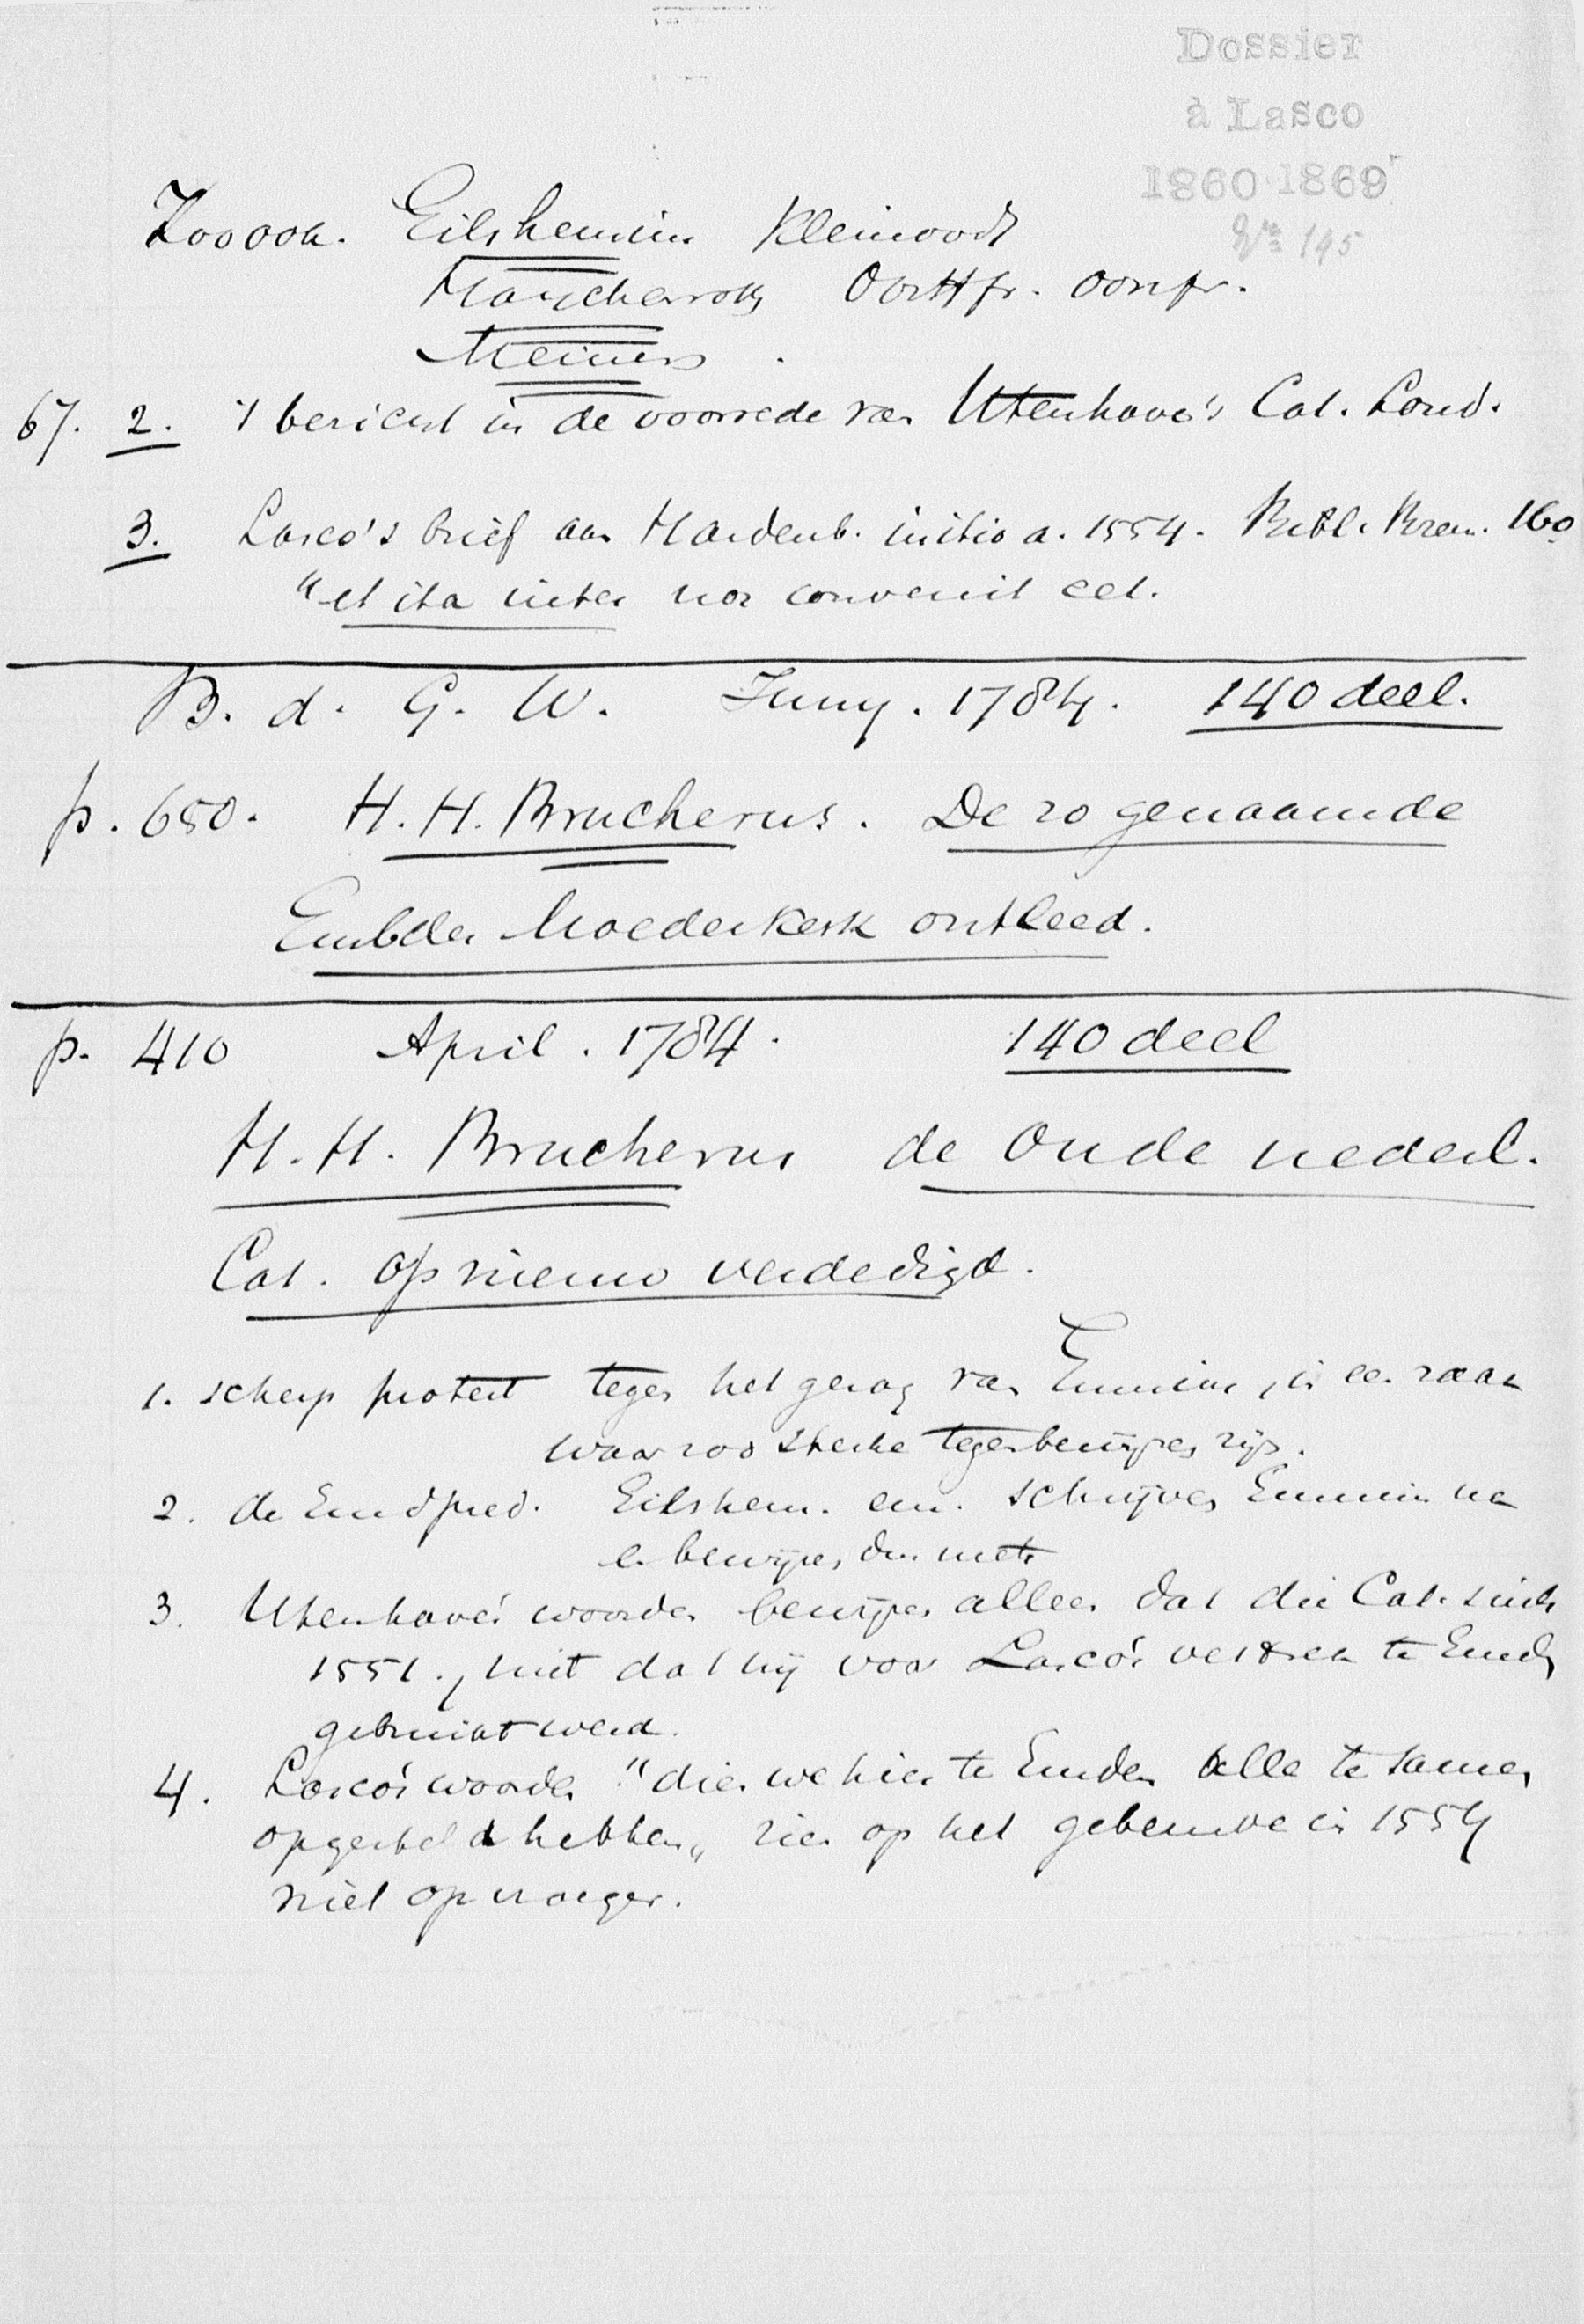 Dossier
à Lasco
1860 1869
No 145
Zoo ook. Eilshemius Kleinoodt
Oostfr.
Meiners.
67. 2. 't bericht in de voorrede van Utenhove's Cat. Lond.
3. Lasco's brief aan Hardenb. initio a. 1554. Bibl. Brem. 160
"et ita inter nos convenit cet.
B. d. G. W. Juny. 1784. 140 deel.
p. 650. H. H. Brucherus. De zo genaamde
Embder Moederkerk ontleed.
p. 410 April. 1784. 140 deel
H. H. Brucherus de Oude nederl.
Cat. op nieuw verdedigd.
1. scherp protest tegen het gezag van Emmius, in een zaak
waar zoo sterke tegenbewijzen zijn.
2. de Emd pred. Eilshem. en. schrijven Emmius na
en bewijzen dus niets
3. Utenhove's woorden bewijzen alleen dat die Cat. sinds
1551., niet dat hij voor Lasco's vertrek te Emd.
gebruikt werd.
4. Lasco's woorden "die we hier te Emden alle te samen
opgesteld hebben„ zien op het gebeurde in 1554
niet op vroeger.